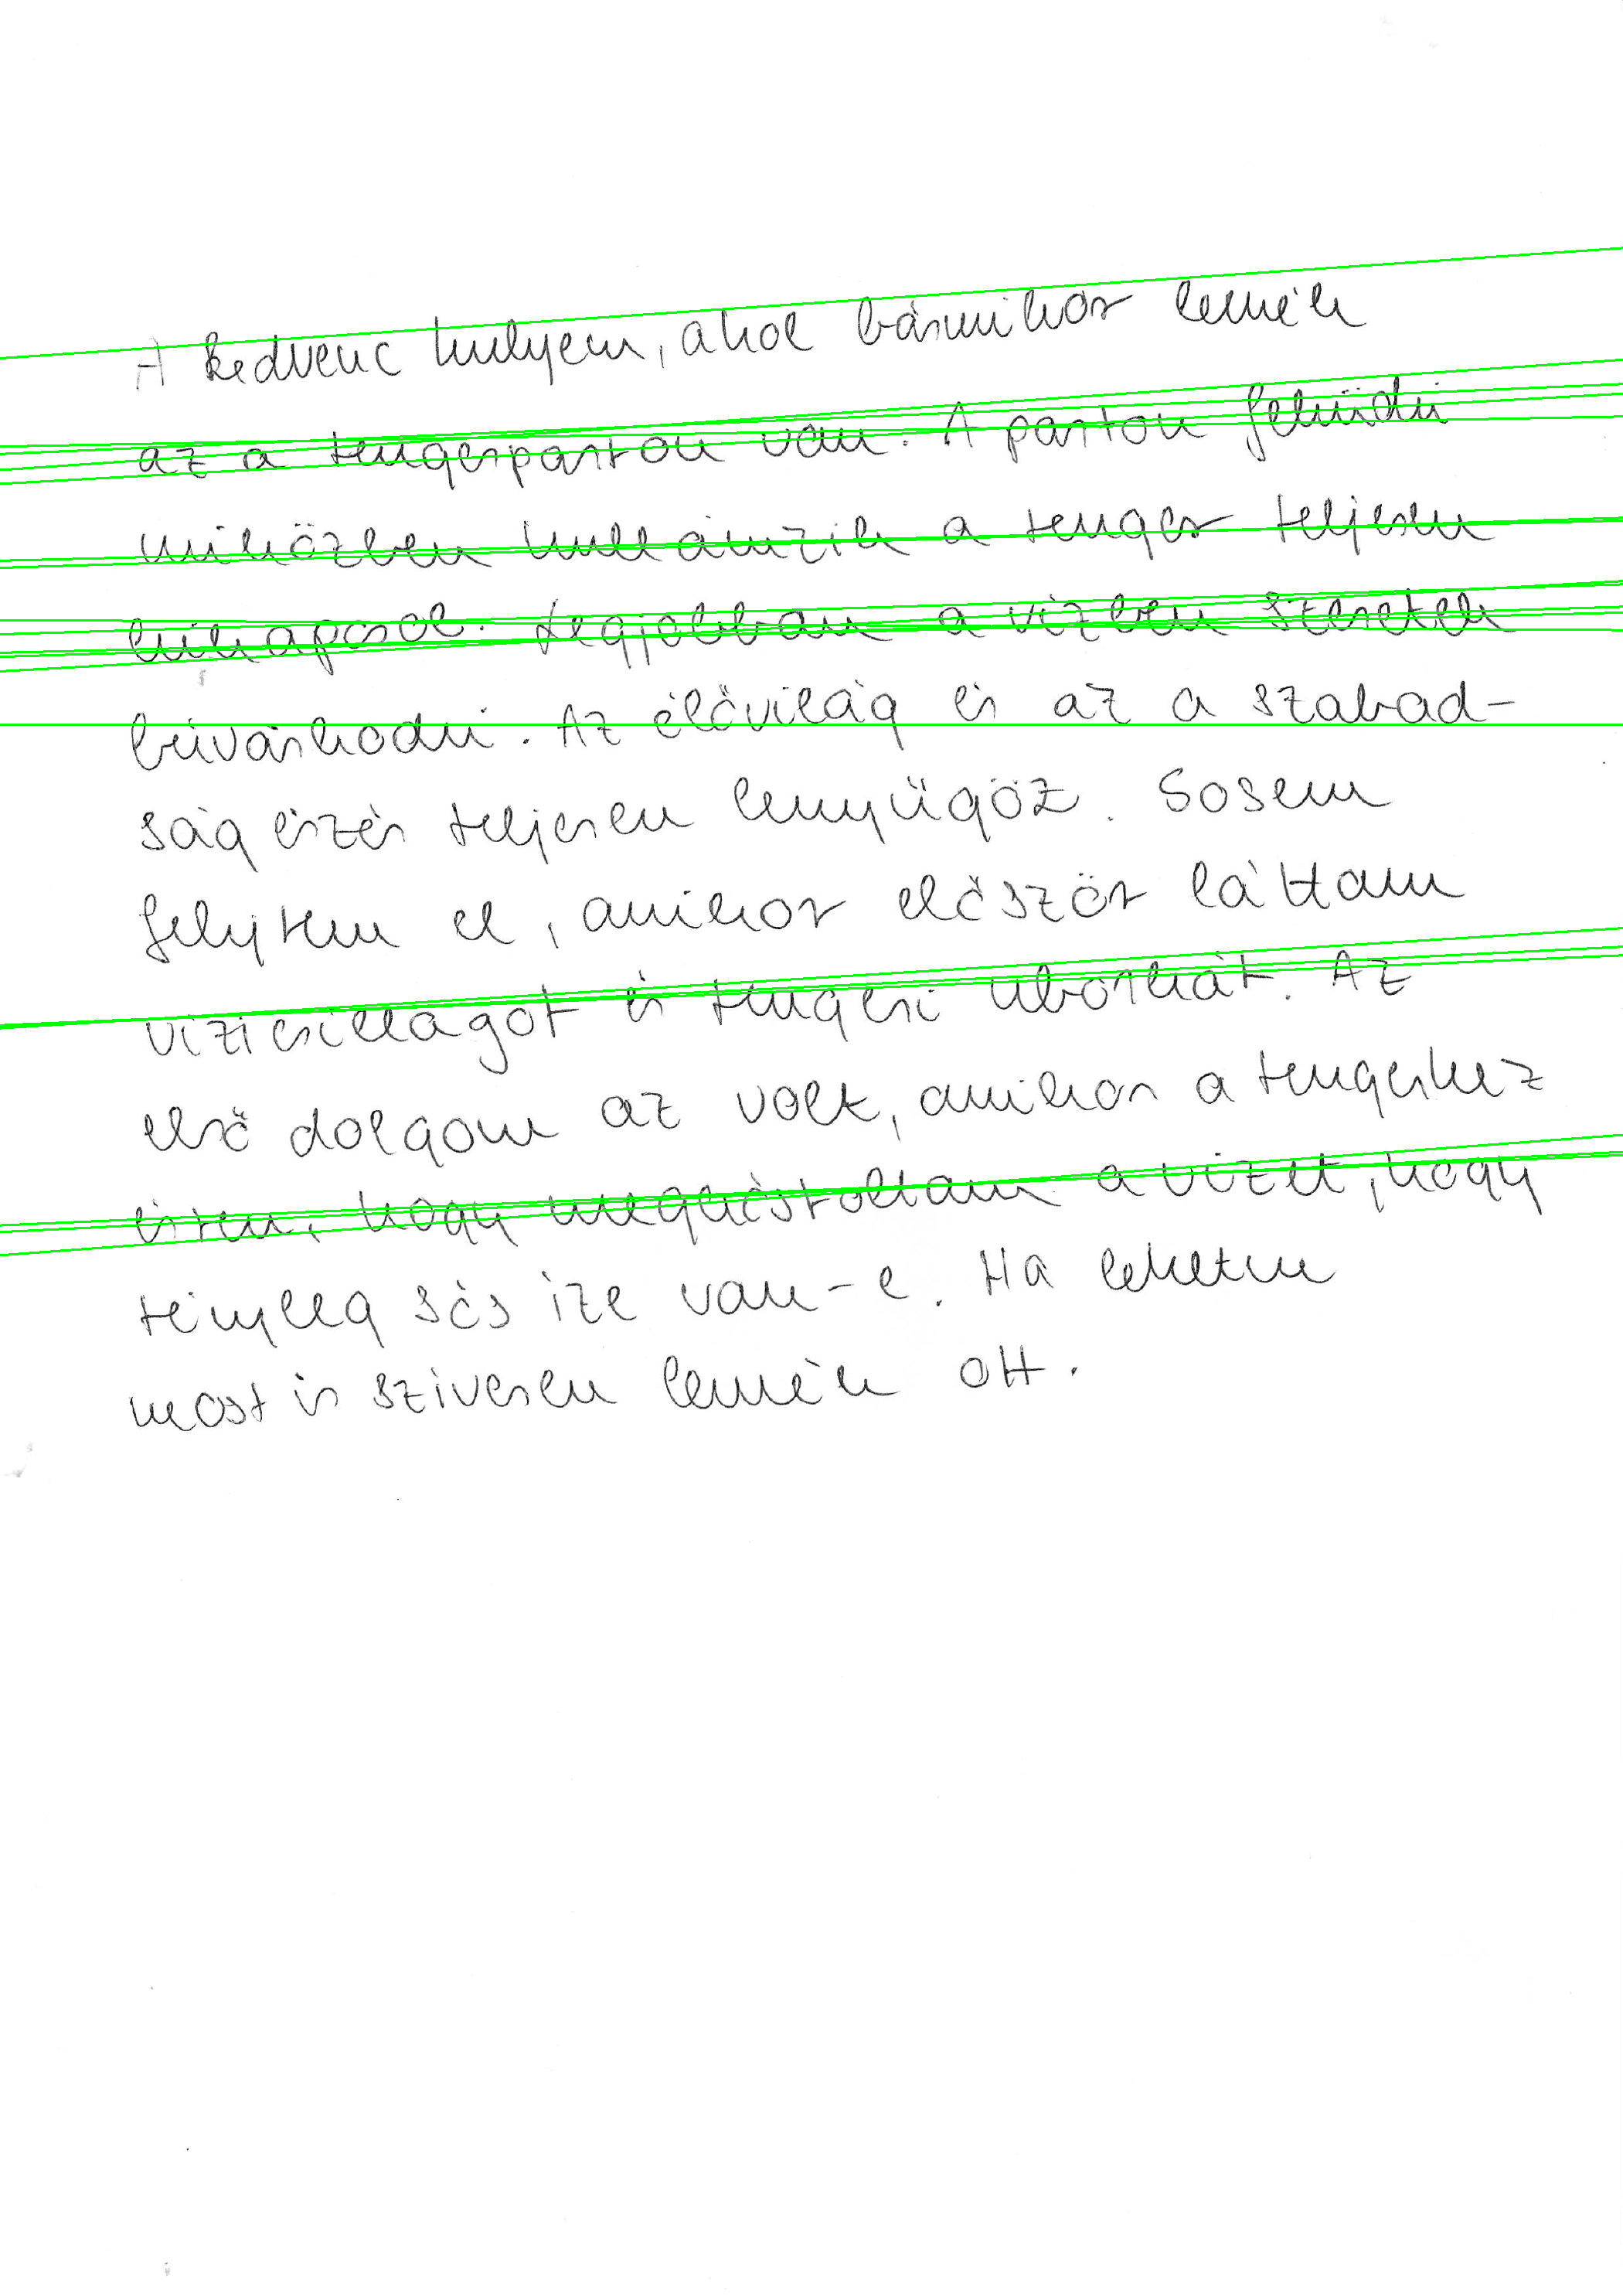 A kedvenc helyem, ahol bármikor lennék
az a tengerparton van. A parton feküdni
miközben hullámzik a tenger teljesen
kikapcsol. Legjobban a vízben szeretek
búvárkodni. Az élővilág és az a szabad-
ság érzés teljesen lenyűgöz. Sosem
felejtem el, amikor először láttam
vizicsillagot és tengeri uborkát. Az
első dolgom az volt, amikor a tengerhez
értem, hogy megkóstoltam a vizet, hogy
tényleg sós íze van-e. Ha lehetne
most is szivesen lennék ott.